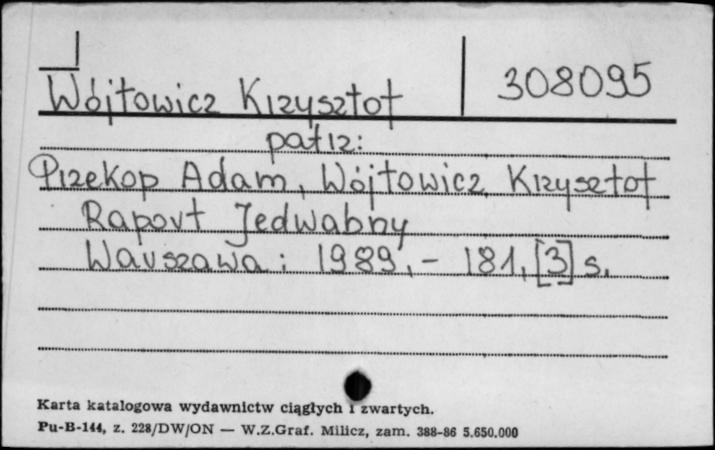 Wójtowicz Krzysztof
308095
patrz:
Przekop Adam, Wójtowicz Krzysztof
Raport Jedwabny
Warszawa : 1989. - 181, [3] s.
Karta katalogowa wydawnictw ciągłych i zwartych.
Pu-B-144, z. 228/DW/ON — W.Z.Graf. Milicz, zam. 388-86 5.650.000